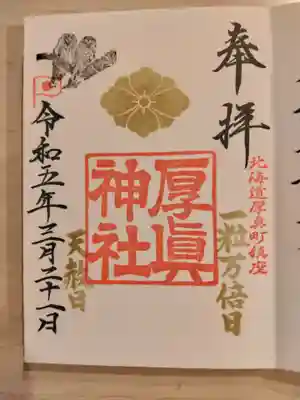 奉拝
北海道厚真町鎮座
一粒万倍日
厚眞
神社
天赦日
令和五年三月二十一日